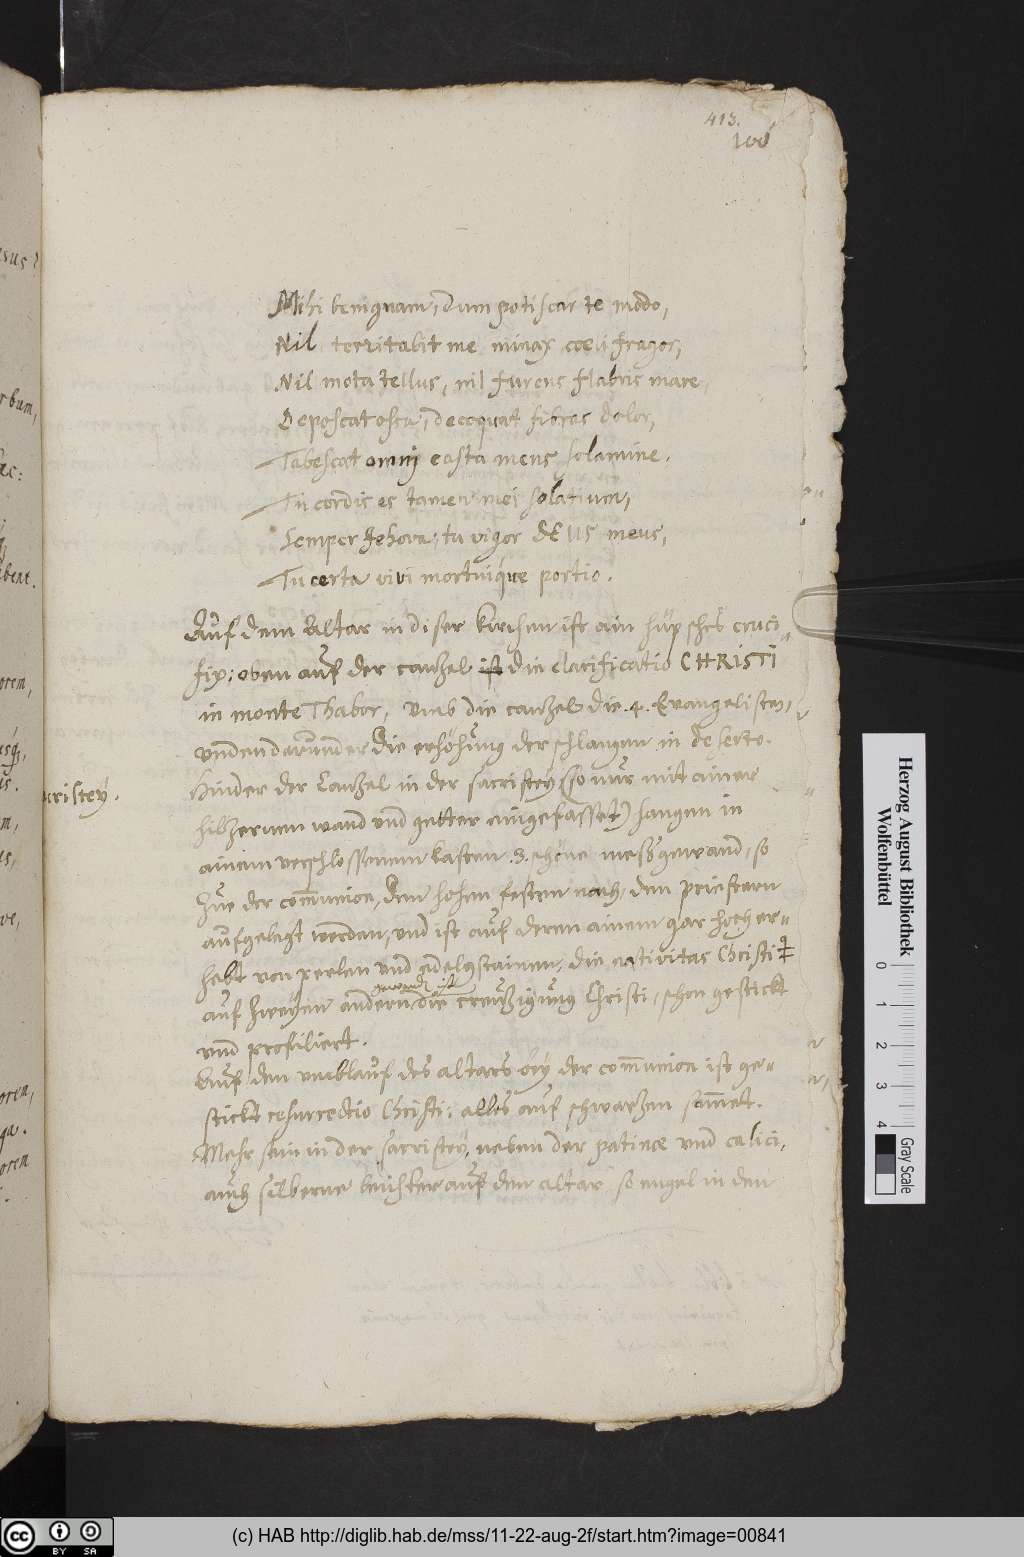 413.
Mihi benignam, dum potiscar te modo,
Nil territabit me minax coeli fragor,
Nil mota tellus, nil furens flabris mare,
Deposcat osca, decoquat fibras dolor,
Tabescat omnj casta mens solamine.
Tu cordis es tamen mei solatium,
Semper Jehova, tu vigor dEUS meus,
Tu certa vivi mortuique portio.
Auf dem Altar in diser kirchen ist ain hüpsches cruci-
fix: oben auf der canzel ist die clarificatio CHRISTI
in monte Thabor, umb die canzel die .4. Evangelisten,
unden darunder die erhöhung der schlangen in deserto.
Hinder der Canzel in der sacristey (so nur mit ainer
hilzernen wand und getter eingefasset) hangen in
ainem verschlossenen kasten .3. schöne meßgewand, so
zue der com̄union, den hohen festen nach, den priestern
aufgelegt werden, und ist auf deren ainem gar hoch er-
hebt von perlen und edelgstainen, die nativitas Christi
gewand ist
auf zweyen andern die creuzigung Christi, schon gestickt
und profiliert.
Auf den umblauf des altars bey der com̄union ist ge-
stickt resurrectio Christi: alles auf schwarzem sam̄et.
Mehr sein in der sacristey, neben der patinae und calici,
auch silberne leuchter auf den altar so engel in den
ristey.
orem,
Herzog August Bibliothek
Wolfenbüttel
0 1 2 3 4
Gray Scale
cc BY SA
(c) HAB http://diglib.hab.de/mss/11-22-aug-2f/start.htm?image=00841